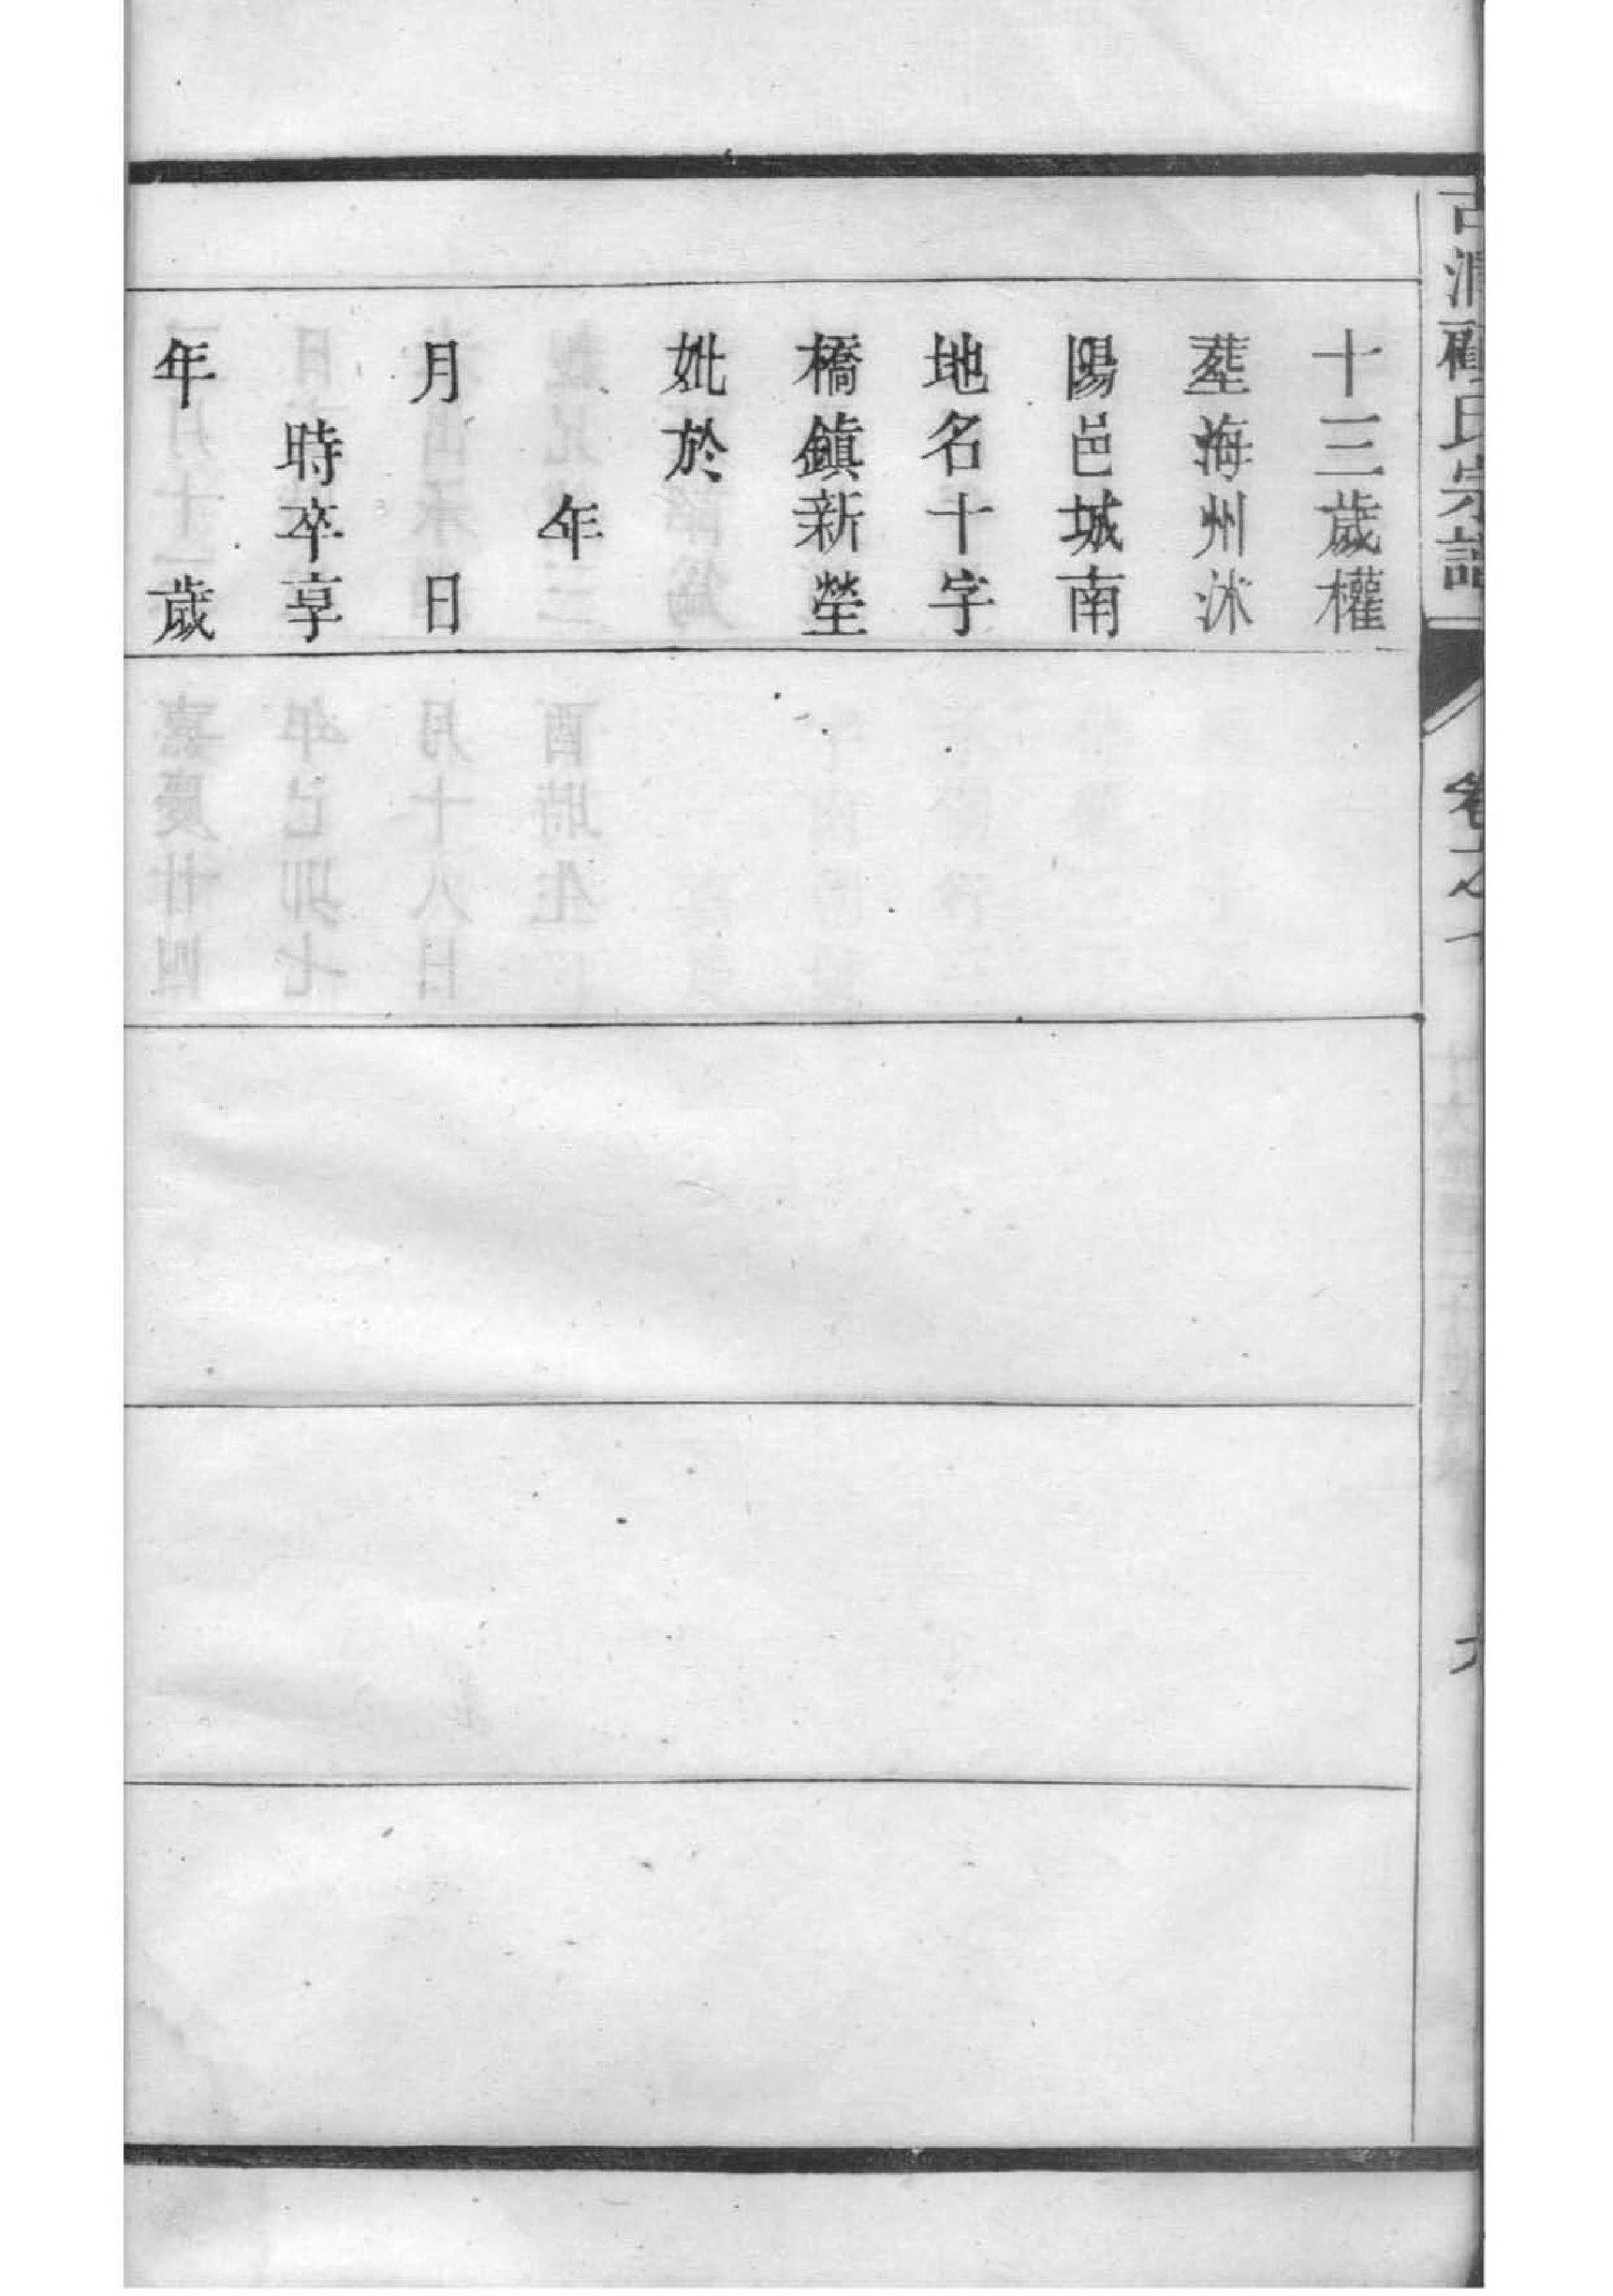 十三歲權
塟海州沭
陽邑城南
地名十字
橋鎮新塋
妣於
年
月 日
時卒享
年 歲
顧氏宗譜
卷之